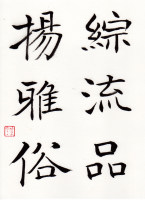 綜流品
揚雅俗